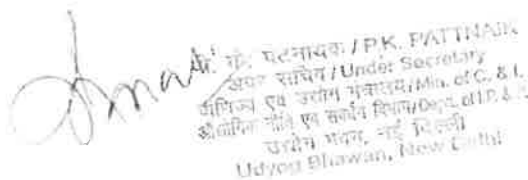 पी. के. पटनायक / P.K. PATTNAIK
अवर सचिव / Under Secretary
वाणिज्य एवं उद्योग मंत्रालय / Min. of C. & I.
औद्योगिक नीति एवं संवर्धन विभाग / Dept. of I.P. & P.
उद्योग भवन, नई दिल्ली
Udyog Bhawan, New Delhi